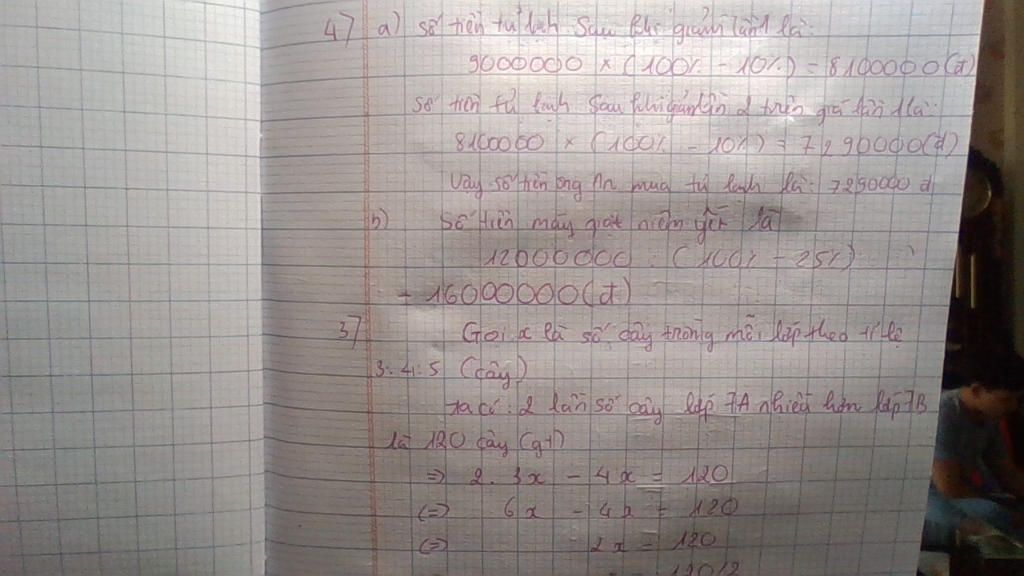 4) a) Số tiền tủ lạnh sau khi giảm lần 1 là:
9000000 × (100% - 10%) = 8100000 (đ)
Số tiền tủ lạnh sau khi giảm lần 2 trên giá lần 1 là:
8100000 × (100% - 10%) = 7290000 (đ)
Vậy số tiền ông An mua tủ lạnh là: 7290000 đ
b) Số tiền máy giặt niêm yết là
12000000 : (100% - 25%)
= 16000000 (đ)
3) Gọi x là số cây trồng mỗi lớp theo tỉ lệ
3:4:5 (cây)
Ta có: 2 lần số cây lớp 7A nhiều hơn lớp 7B
là 120 cây (gt)
=> 2.3x - 4x = 120
<=> 6x - 4x = 120
<=> 2x = 120
120/2